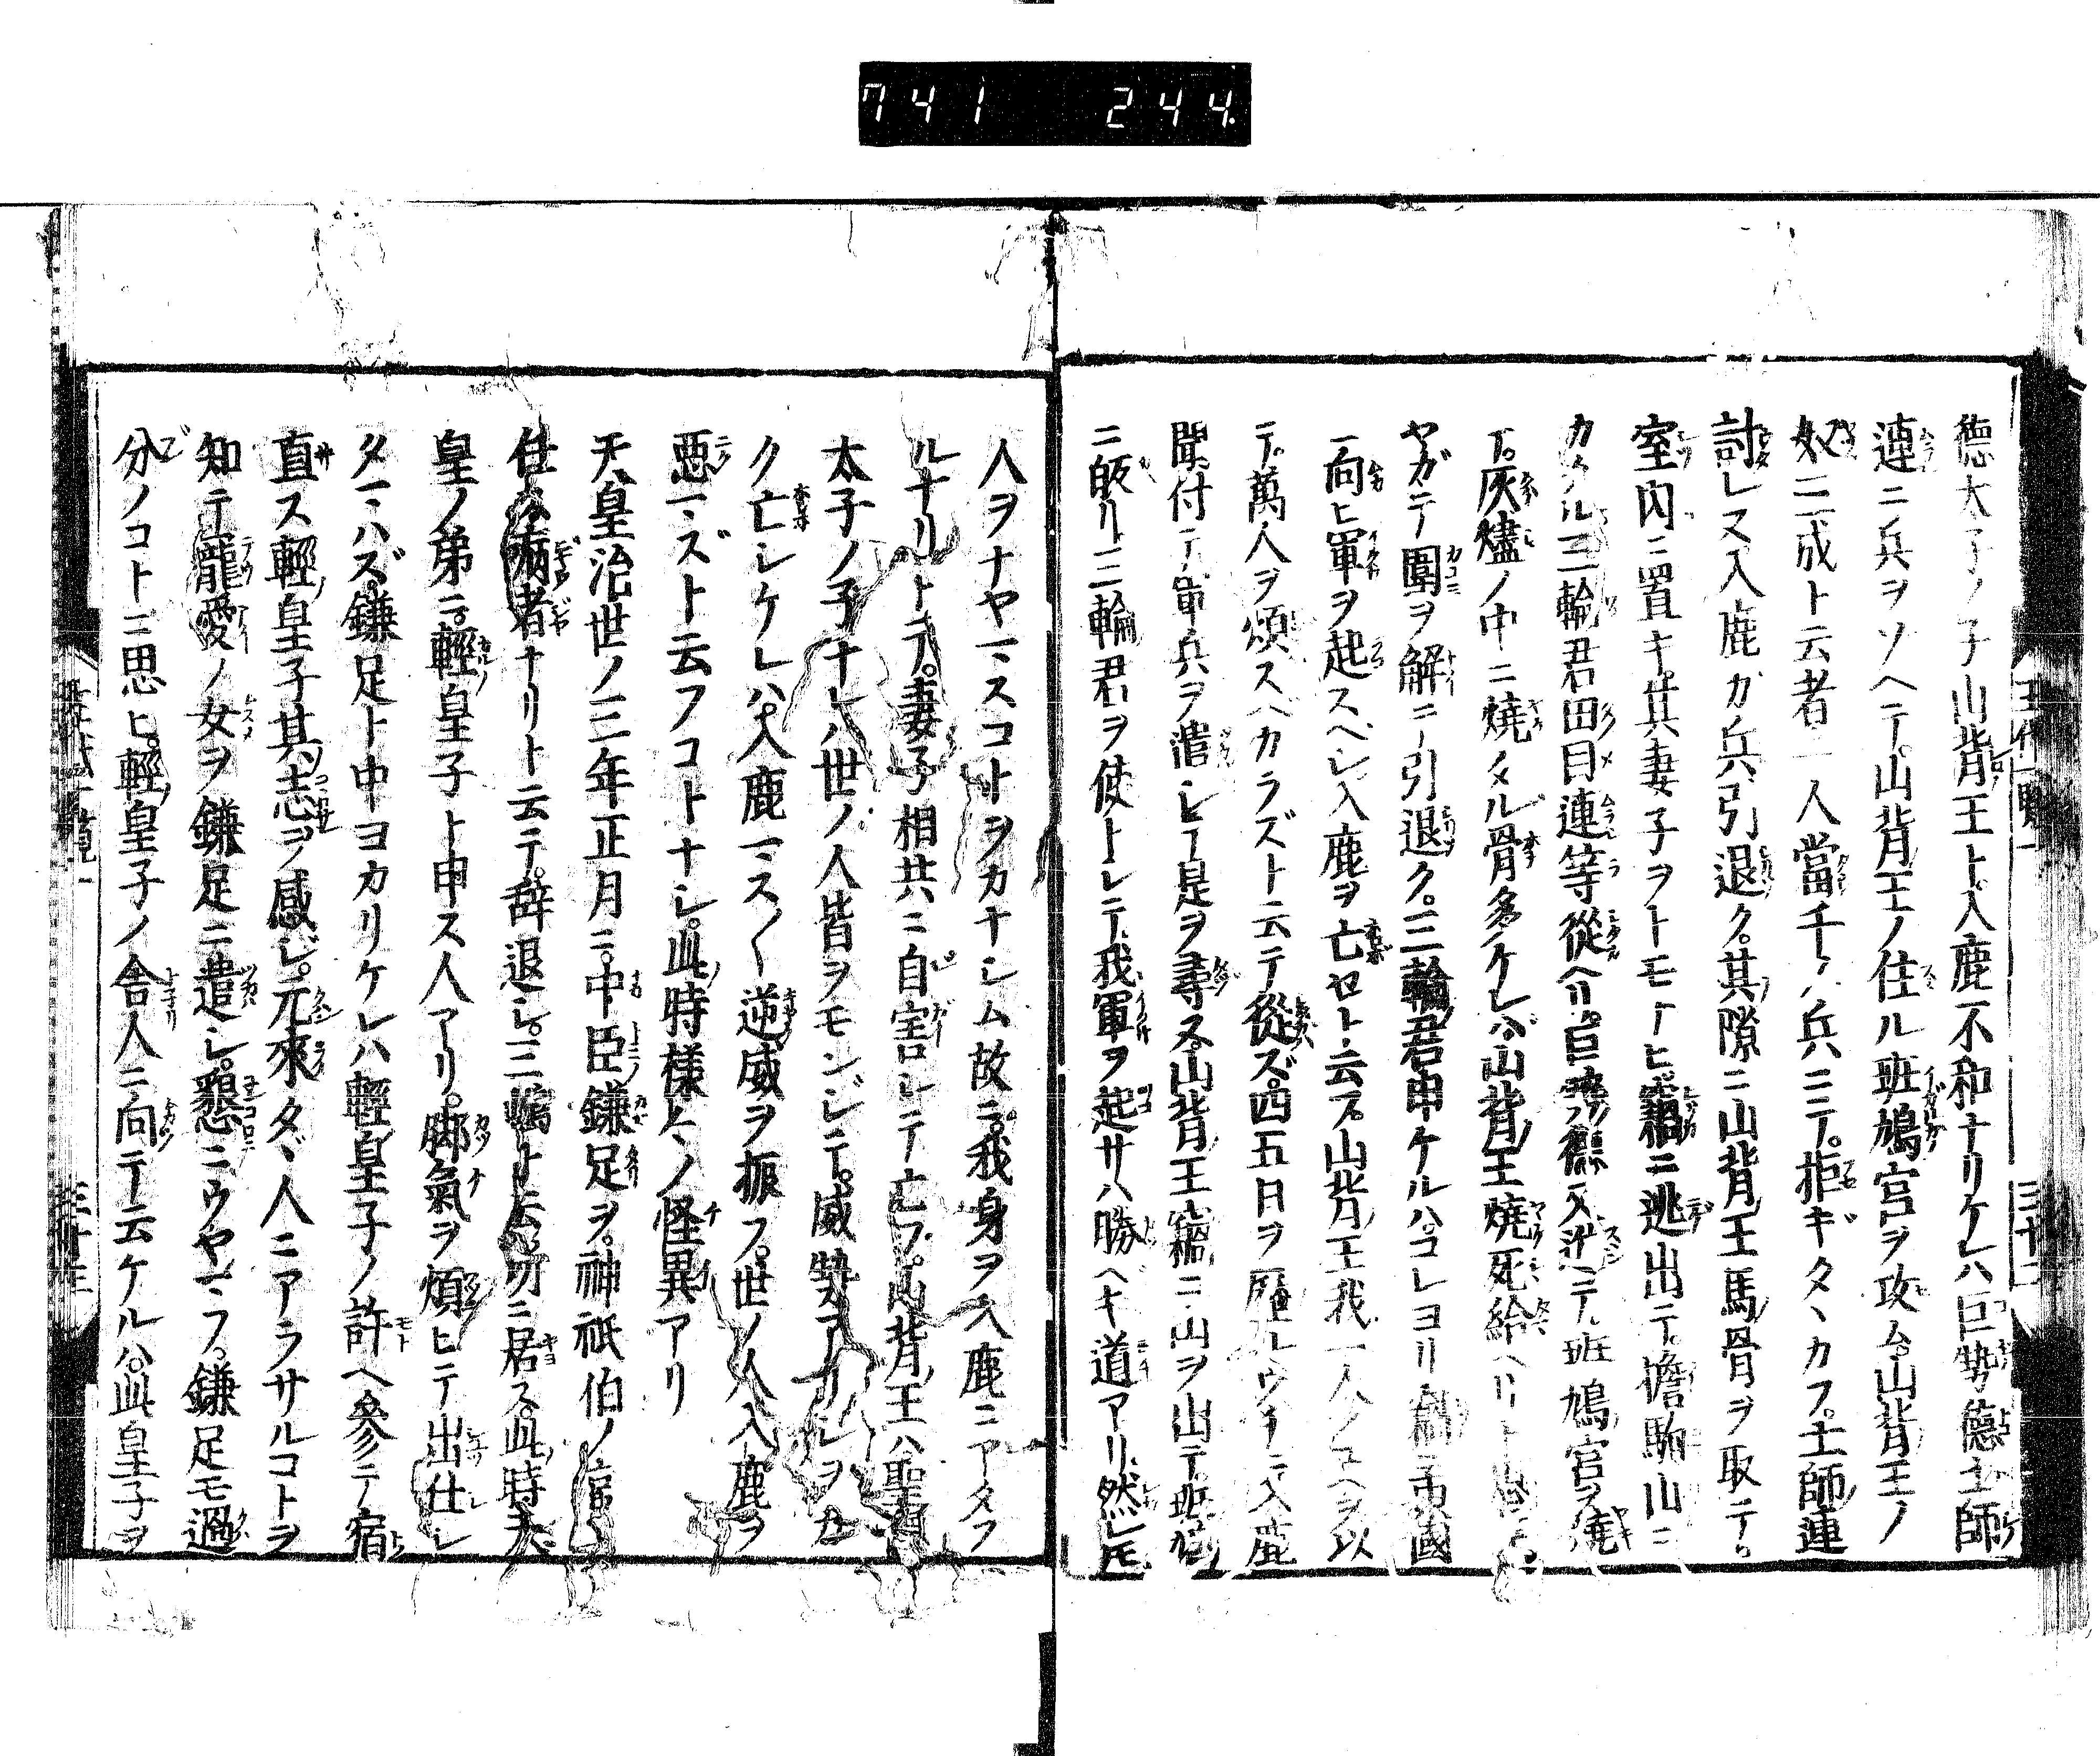 741 244.
徳太子ノ子山背王ト入鹿不和ナリケレハ巨勢徳土師
連ニ兵ヲソヘテ。山背王ノ住ル班鳩宮ヲ攻ム。山背王ノ
奴三成ト云者一人當千ノ兵ニテ。拒ギタヽカフ。土師連
討レヌ入鹿カ兵引退ク。其隙ニ山背王馬骨ヲ取テ。
室内ニ置キ。其妻子ヲトモナヒ竊ニ逃出テ。膽駒山ニ
カクル三輪君田目連等從ヘリ。巨勢徳又進ミテ。班鳩宮ヲ燒
下。灰燼ノ中ニ燒タル骨多ケレバ。山背王燒死給ヘリト
ヤガテ圍ヲ解ニ引退ク。三輪君申ケルハ。コレヨリ東國
ニ向ヒ軍ヲ起スベシ入鹿ヲ亡セト云フ。山背王我一人ノユヘヲ以
テ。萬人ヲ煩スベカラズト云テ從ズ。四五日ヲ歴ルウチニ入鹿
聞付テ軍兵ヲ遣シテ是ヲ尋ヌ。山背王竊ニ山ヲ出テ。班鳩
ニ皈リ三輪君ヲ使トシテ。我軍ヲ起サハ勝ヘキ道アリ。然レ𪜈
人ヲナヤマスコトヲカナシム故ニ。我身ヲ入鹿ニアタフ
ルナリトテ。妻子相共ニ自害シテ亡フ。山背王ハ聖徳
太子ノ子ナレハ世ノ人皆ヲモンジテ。威勢アリシヲカ
ク亡シケレハ。入鹿マス〱逆威ヲ振フ。世ノ人入鹿ヲ
惡マズト云フコトナシ。此時樣々ノ怪異アリ
天皇治世ノ三年正月ニ。中臣鎌足ヲ。神祇伯ノ官ニ
任ス病者ナリト云テ。辞退シ。三嶋ト云所ニ居ス。此時天
皇ノ弟ニ。輕皇子ト申ス人アリ。脚氣ヲ煩ヒテ出仕シ
タマハズ。鎌足ト中ヨカリケレハ輕皇子ノ許ヘ參テ宿
直ス輕皇子其志ヲ感ジ。元來タヾ人ニアラサルコトヲ
知テ寵愛ノ女ヲ鎌足ニ遣シ。懇ニウヤマフ。鎌足モ過
分ノコトニ思ヒ。輕皇子ノ舎人ニ向テ云ケルハ。此皇子ヲ